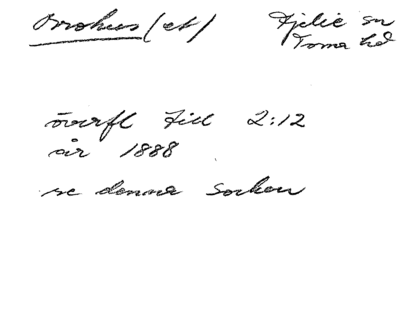 Orrohus (et) Fjelie sn
Torna hd
överfl till 2:12
år 1888
se denna socken